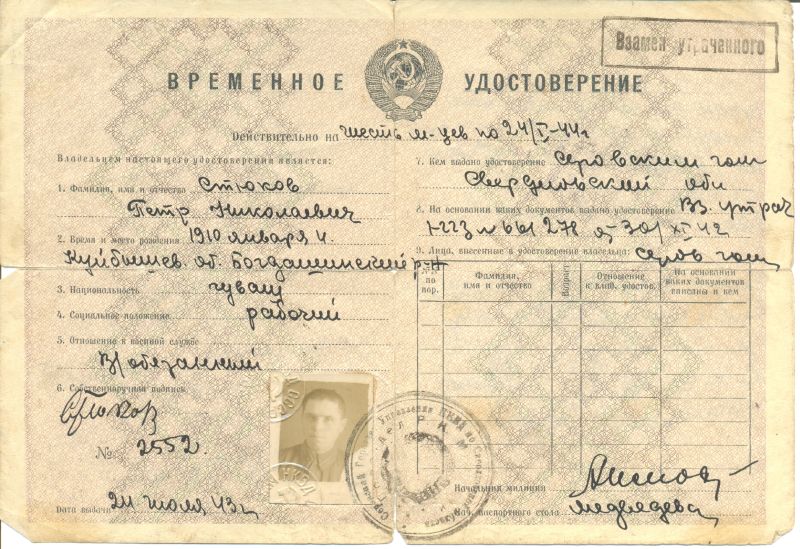 Взамен утраченного
ВРЕМЕННОЕ УДОСТОВЕРЕНИЕ
Действительно на шесть м-цев по 24/I-44г
Владельцем настоящего удостоверения является:
1. Фамилия, имя и отчество Стюков
Петр Николаевич
2. Время и место рождения 1910 января 4.
Куйбышев. об. Богдашкинский р-н
3. Национальность чуваш
4. Социальное положение рабочий
5. Отношение к военной службе
В/обязанный
6. Собственноручная подпись
Стюков
№ 2552.
Дата выдачи 24 июля 43г
7. Кем выдано удостоверение Серовским гом
Свердловской обл
8. На основании каких документов выдано удостоверение Вз. утрач
278 от 30/XI 42
9. Лица, внесенные в удостоверение владельца: Серов гом
№№ по пор.
Фамилия, имя и отчество
Возраст
Отношение к влад. удостов.
На основании каких документов вписаны и кем
Начальник милиции
Нач. паспортного стола Медведева